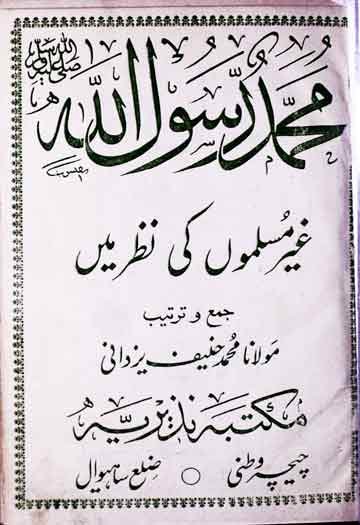 محمد رسول اللہ صلی اللہ علیہ وسلم
غیر مسلموں کی نظر میں
جمع و ترتیب
مولانا محمد حنیف یزدانی
مکتبہ نذیریہ
چیچہ وطنی ○ ضلع ساہیوال